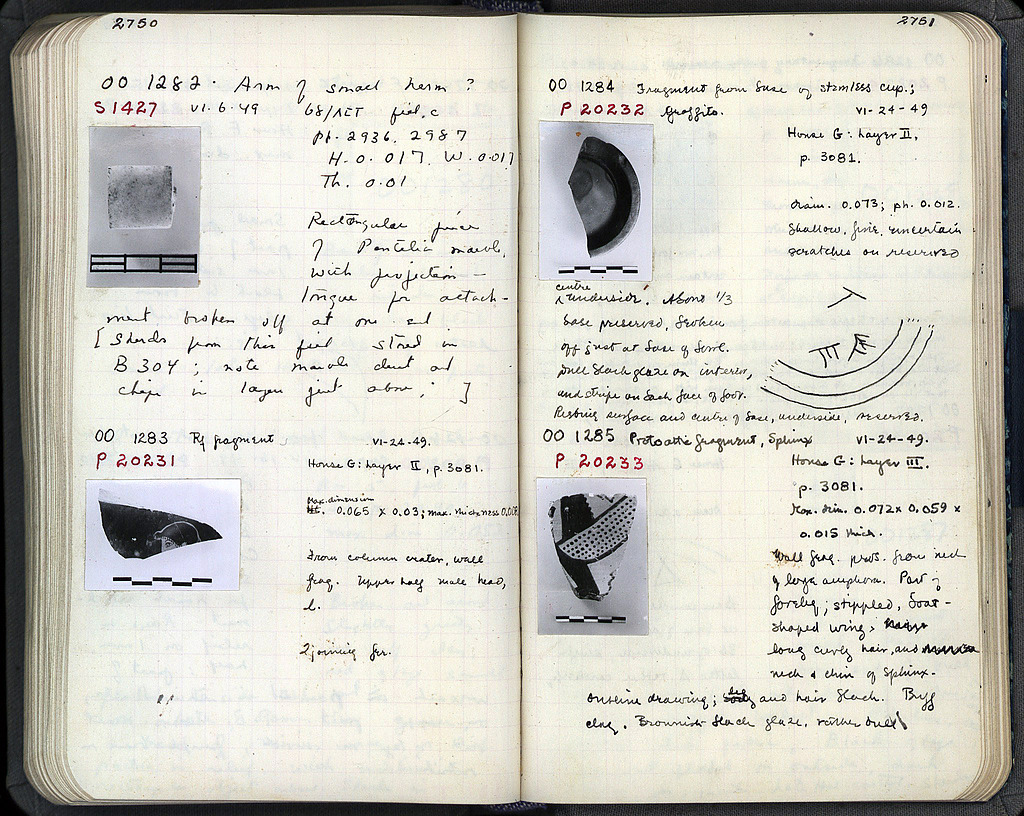 2750
OO 1282. Arm of small herm?
S 1427 VI.6.49 68/ΛET fill, c
Ph. 2936, 2987
H. 0.017, W. 0.017
Th. 0.01
Rectangular piece
of Pentelic marble,
with projection –
tongue for attach-
ment broken off at one end.
[Sherds from this fill stored in
B 304; note marble dust and
chips in layer just above;]
OO 1283 Rf fragment. VI-24-49.
P 20231 House G: Layer II, p. 3081.
Max. dimension
0.065 x 0.03; max. thickness
From column crater, wall
frag. Upper half male head,
l.
2 joining fr.
2751
OO 1284 Fragment from base of stemless cup;
P 20232 Graffito. VI-24-49
House G: Layer II,
p. 3081.
Diam. 0.073; ph. 0.012.
Shallow, fine, uncertain
scratches on reserved
centre
underside. About 1/3
base preserved, broken
off just at base of bowl.
Dull black glaze on interior,
and stripe on each face of foot.
Resting surface and centre of base, underside, reserved.
OO 1285 Protoattic fragment, Sphinx VI-24-49.
P 20233 House G: Layer III.
p. 3081.
Max. dim. 0.072 x 0.059 x
0.015 thick.
Wall frag. pres. from neck
of large amphora. Part of
foreleg; stippled, boat-
shaped wing,
long curly hair, and
neck & chin of Sphinx.
Outline drawing; leg and hair black. Buff
clay. Brownish black glaze, rather dull